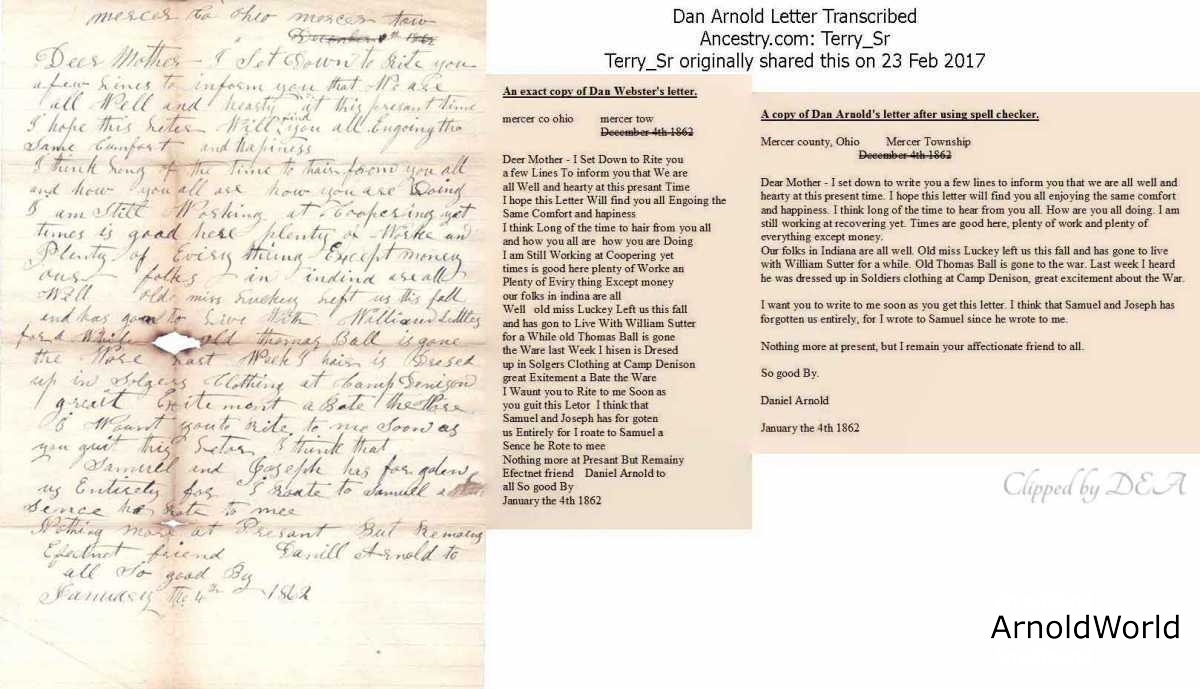 mercer Co ohio mercer tow
December 4th 1862
Deer Mother - I Set Down to Rite you
a few Lines to inform you that We are
all Well and hearty at this presant time
I hope this Leter Will find you all Engoing the
Same Comfort and hapiness
I think Long of the time to hair from you all
and how you all are how you are Doing
I am Still Working at Coopering yet
times is good here plenty of Worke an
Plenty of Eviry thing Except money
our folks in indina are all
Well old miss Luckey Left us this fall
and has gon to Live With William Sutter
for a While old thomas Ball is gone
the Ware Last Week I heir is Dresed
up in Solgers Clothing at Camp Denison
great Exitement a Bate the Ware
I Waunt you to Rite to me Soon as
you guit this Letor I think that
Samuel and Joseph has for goten
us Entirely for I roate to Samuel a
Sence he Rote to mee
Nothing more at Presant But Remainy
Efectnet friend Daniell Arnold to
all So good By
January the 4th 1862
Dan Arnold Letter Transcribed
Ancestry.com: Terry_Sr
Terry_Sr originally shared this on 23 Feb 2017
An exact copy of Dan Webster's letter.
mercer co ohio mercer tow
December 4th 1862
Deer Mother - I Set Down to Rite you
a few Lines To inform you that We are
all Well and hearty at this presant Time
I hope this Letter Will find you all Engoing the
Same Comfort and hapiness
I think Long of the time to hair from you all
and how you all are how you are Doing
I am Still Working at Coopering yet
times is good here plenty of Worke an
Plenty of Eviry thing Except money
our folks in indina are all
Well old miss Luckey Left us this fall
and has gon to Live With William Sutter
for a While old Thomas Ball is gone
the Ware last Week I hisen is Dresed
up in Solgers Clothing at Camp Denison
great Exitement a Bate the Ware
I Waunt you to Rite to me Soon as
you guit this Letor I think that
Samuel and Joseph has for goten
us Entirely for I roate to Samuel a
Sence he Rote to mee
Nothing more at Presant But Remainy
Efectnet friend Daniel Arnold to
all So good By
January the 4th 1862
A copy of Dan Arnold's letter after using spell checker.
Mercer county, Ohio Mercer Township
December 4th 1862
Dear Mother - I set down to write you a few lines to inform you that we are all well and
hearty at this present time. I hope this letter will find you all enjoying the same comfort
and happiness. I think long of the time to hear from you all. How are you all doing. I am
still working at recovering yet. Times are good here, plenty of work and plenty of
everything except money.
Our folks in Indiana are all well. Old miss Luckey left us this fall and has gone to live
with William Sutter for a while. Old Thomas Ball is gone to the war. Last week I heard
he was dressed up in Soldiers clothing at Camp Denison, great excitement about the War.
I want you to write to me soon as you get this letter. I think that Samuel and Joseph has
forgotten us entirely, for I wrote to Samuel since he wrote to me.
Nothing more at present, but I remain your affectionate friend to all.
So good By.
Daniel Arnold
January the 4th 1862
Clipped by DEA
ArnoldWorld